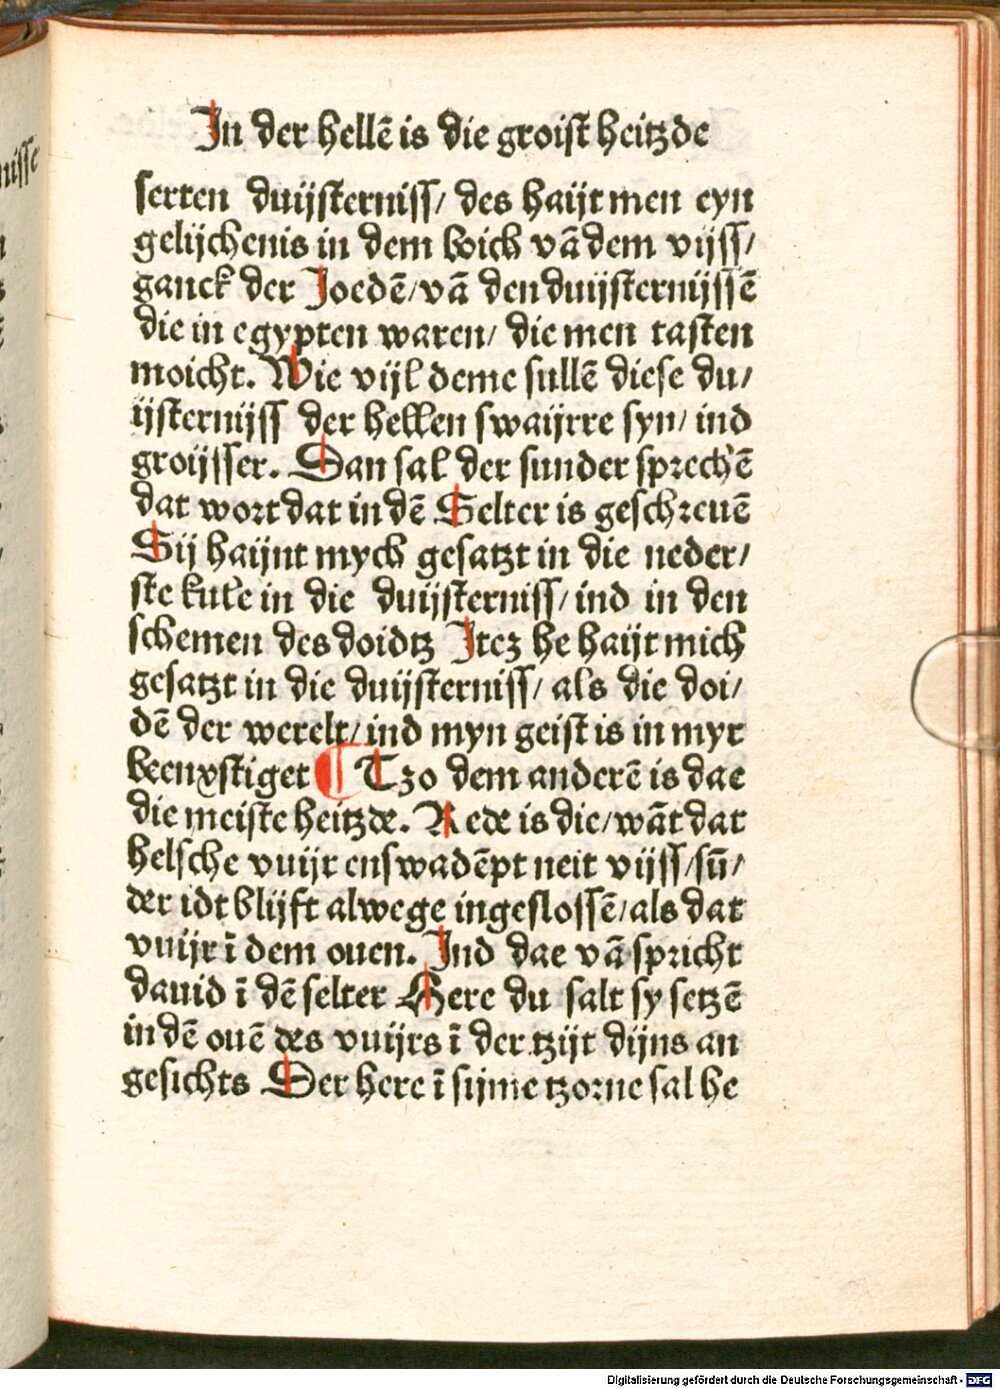 In der hellē is die groist heitzde
serten duijsterniss/ des haijt men eyn
gelijchenis in dem boich vā dem vijss/
ganck der Joedē/vā den duijsternijssē
die in egypten waren/ die men tasten
moicht. Wie vijl deme sullē diese du/
ijsternijss der hellen swaijrre syn/ ind
groijsser. Dan sal der sunder sprechē
dat wort dat in dē Selter is geschreuē
Sij haijnt mych gesatzt in die neder/
ste kule in die duijsterniss/ ind in den
schemen des doidtz Itez he haijt mich
gesatzt in die duijsterniss/ als die doi/
dē der werelt/ ind myn geist is in myr
beenxstiget ¶ Tzo dem anderē is dae
die meiste heitzde. Rede is die/wāt dat
helsche vuijr enswadēpt neit vijss/sū/
der idt blijft alwege ingeslossē/als dat
vuijr ī dem ouen. Ind dae vā spricht
dauid ī dē selter Here du salt sy setzē
in dē ouē des vuijrs ī der tzijt dijns an
gesichts Der here ī sijme tzorne sal he
nisse
Digitalisierung gefördert durch die Deutsche Forschungsgemeinschaft - DFG